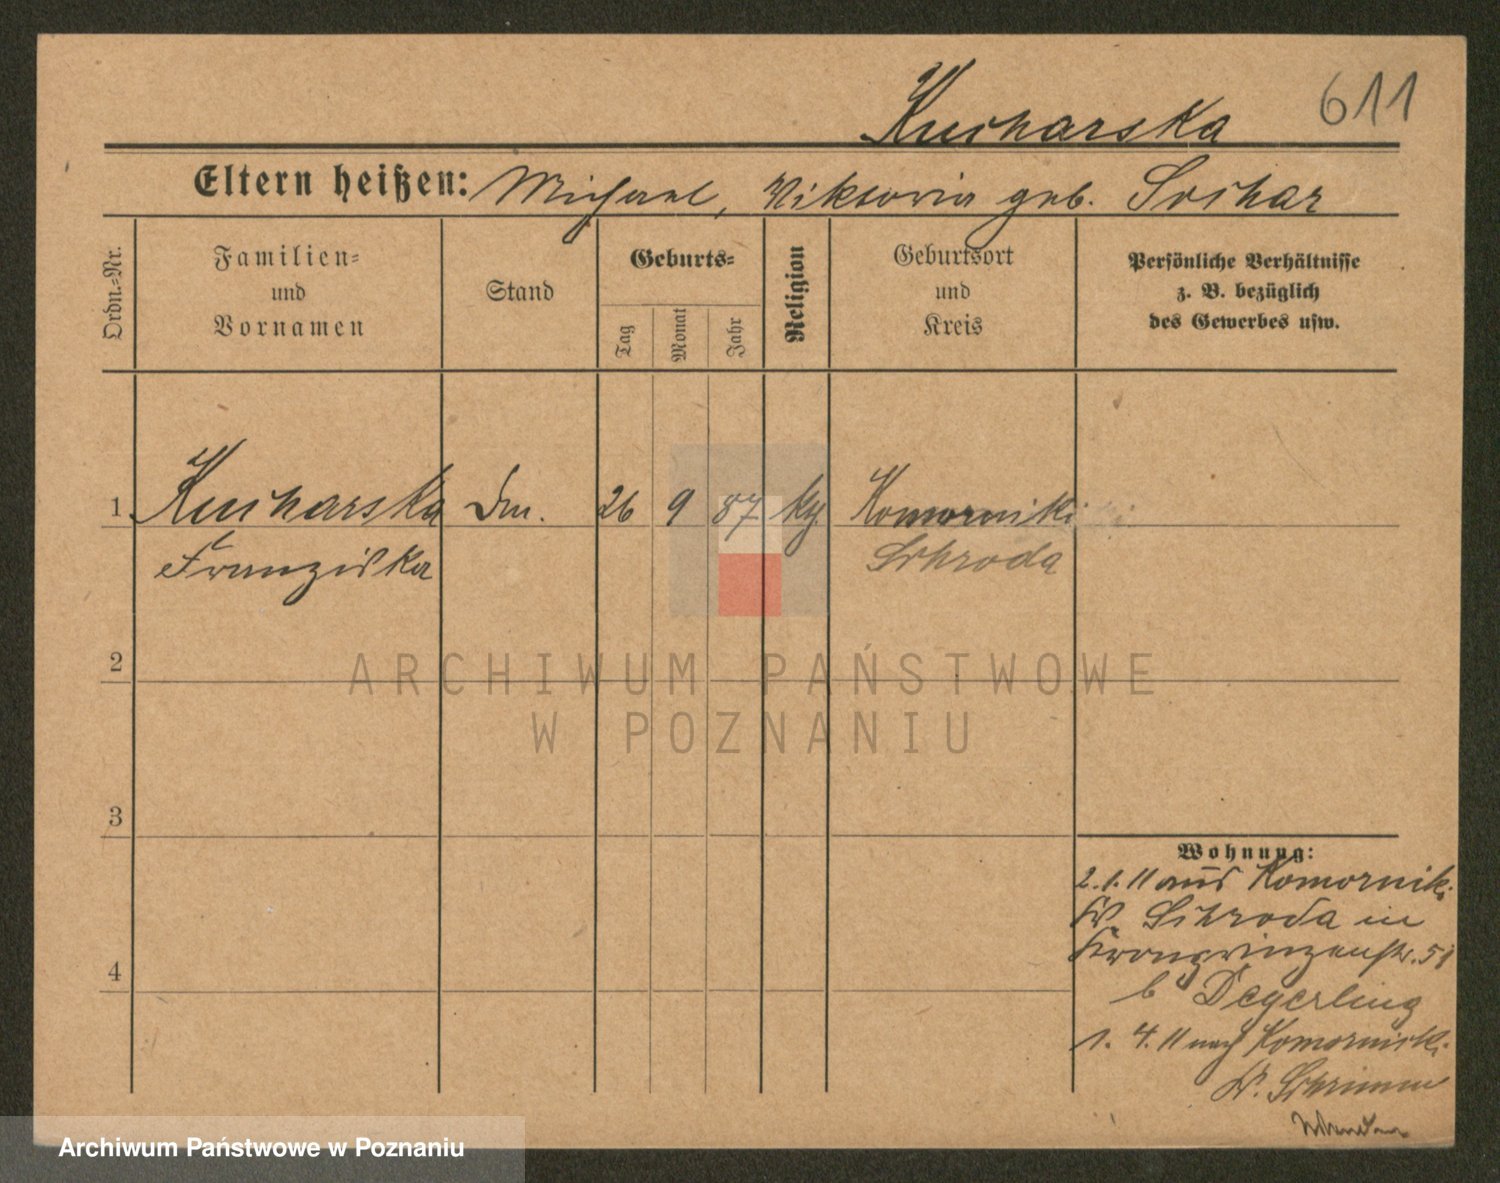 Kucharska 611
Eltern heißen: Michael, Viktoria geb. Sochar
Ordn.=Nr.
Familien=
und
Vornamen
Stand
Geburts=
Tag
Monat
Jahr
Religion
Geburtsort
und
Kreis
Persönliche Verhältnisse
z. B. bezüglich
des Gewerbes usw.
1 Kucharska Dm. 26 9 87 kg. Komorniki
Franziska Schroda
2
3
4
Wohnung:
2.1.11 aus Komorniki
Kr. Schroda in
Kronprinzenstr. 51
b Degerling
1. 4. 11 nach Komorniki
Kr. Schrimm
ARCHIWUM PAŃSTWOWE
W POZNANIU
Archiwum Państwowe w Poznaniu